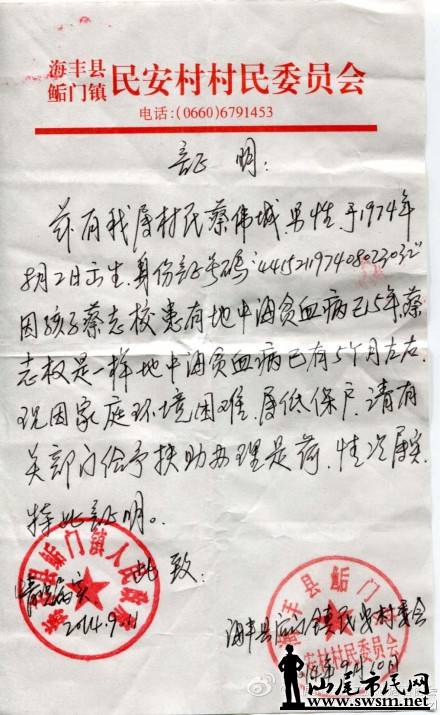 海丰县
鲘门镇
民安村村民委员会
电话:(0660)6791453
证 明:
兹有我属村民蔡伟城男性于1974年
8月2日出生.身份证号码:
因孩子蔡志校患有地中海贫血病已5年.蔡
志权是一样地中海贫血病已有5个月左右.
现因家庭环境困难.属低保户.请有
关部门给予扶助办理是荷.情况属实.
特此证明。
此致:
情况属实
2014.9.11
海丰县鲘门镇人民政府
海丰县后门镇民安村委会
9月10日
海丰县鲘门
民安村村民委员会
山尾市民网
www.swsm.net